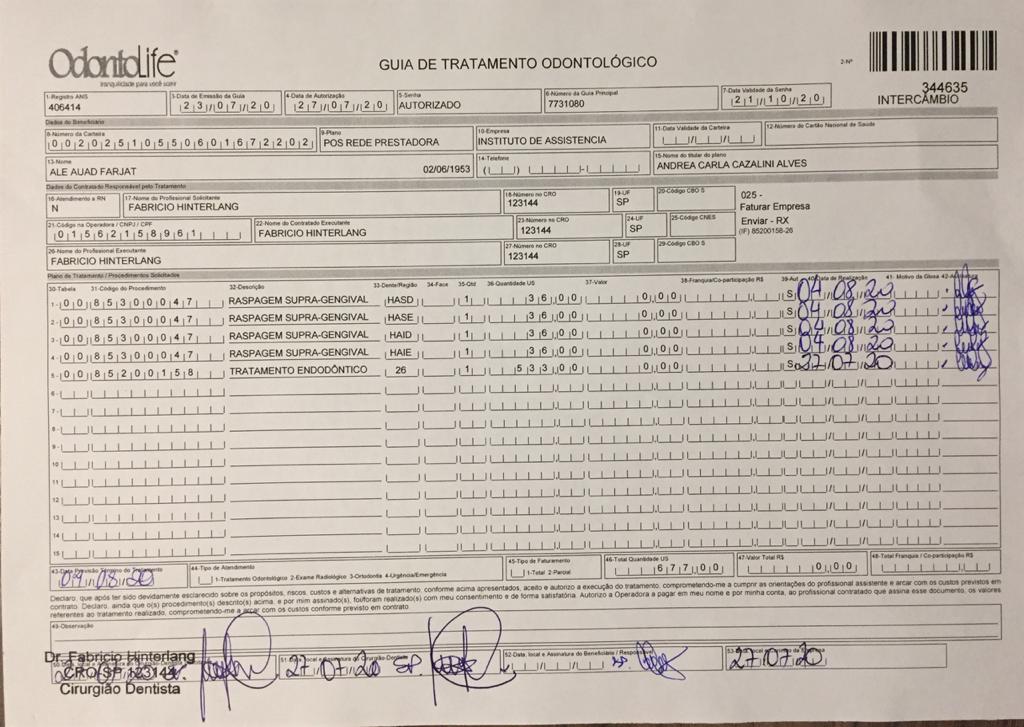 OdontoLife
tranquilidade para você sorrir
GUIA DE TRATAMENTO ODONTOLÓGICO
2-Nº
344635
INTERCÂMBIO
1-Registro ANS 3-Data de Emissão da Guia 4-Data de Autorização 5-Senha 6-Número da Guia Principal 7-Data Validade da Senha
406414 23/07/20 27/07/20 AUTORIZADO 7731080 21/10/20
Dados do Beneficiário
8-Número da Carteira 9-Plano 10-Empresa 11-Data Validade da Carteira 12-Número do Cartão Nacional de Saúde
00202510550601672202 POS REDE PRESTADORA INSTITUTO DE ASSISTENCIA
13-Nome 14-Telefone 15-Nome do titular do plano
ALE AUAD FARJAT 02/06/1953 ANDREA CARLA CAZALINI ALVES
Dados do Contratado Responsável pelo Tratamento
16-Atendimento a RN 17-Nome do Profissional Solicitante 18-Número no CRO 19-UF 20-Código CBO S
N FABRICIO HINTERLANG 123144 SP
025 -
Faturar Empresa
Enviar - RX
(IF) 85200158-26
21-Código na Operadora / CNPJ / CPF 22-Nome do Contratado Executante 23-Número no CRO 24-UF 25-Código CNES
01562158961 FABRICIO HINTERLANG 123144 SP
26-Nome do Profissional Executante 27-Número no CRO 28-UF 29-Código CBO S
FABRICIO HINTERLANG 123144 SP
Plano de Tratamento / Procedimentos Solicitados
30-Tabela 31-Código do Procedimento 32-Descrição 33-Dente/Região 34-Face 35-Qtd 36-Quantidade US 37-Valor 38-Franquia/Co-participação R$ 39-Aut 40-Data de Realização 41- Motivo da Glosa
1- 00 85300047 RASPAGEM SUPRA-GENGIVAL HASD 1 36,00 0,00 S 04/08/20
2- 00 85300047 RASPAGEM SUPRA-GENGIVAL HASE 1 36,00 0,00 S 04/08/20
3- 00 85300047 RASPAGEM SUPRA-GENGIVAL HAID 1 36,00 0,00 S 04/08/20
4- 00 85300047 RASPAGEM SUPRA-GENGIVAL HAIE 1 36,00 0,00 S 04/08/20
5- 00 85200158 TRATAMENTO ENDODÔNTICO 26 1 533,00 0,00 S 27/07/20
6-
7-
8-
9-
10
11
12
13
14
15
43-Data Previsão Término do Tratamento 44-Tipo de Atendimento 45-Tipo de Faturamento 46-Total Quantidade US 47-Valor Total R$ 48-Total Franquia / Co-participação R$
09/08/20 1-Tratamento Odontológico 2-Exame Radiológico 3-Ortodontia 4-Urgência/Emergência 1-Total 2-Parcial 677,00 0,00
Declaro, que após ter sido devidamente esclarecido sobre os propósitos, riscos, custos e alternativas de tratamento, conforme acima apresentados, aceito e autorizo a execução do tratamento, comprometendo-me a cumprir as orientações do profissional assistente e arcar com os custos previstos em
contrato. Declaro, ainda que o(s) procedimento(s) descrito(s) acima, e por mim assinado(s), foi/foram realizado(s) com meu consentimento e de forma satisfatória. Autorizo a Operadora a pagar em meu nome e por minha conta, ao profissional contratado que assina esse documento, os valores
referentes ao tratamento realizado, comprometendo-me a arcar com os custos conforme previsto em contrato
49-Observação
Dr. Fabricio Hinterlang
CRO/SP 123144
Cirurgião Dentista
27/07/20 SP.
52-Data, local e Assinatura do Beneficiário / Responsável
27/07/20